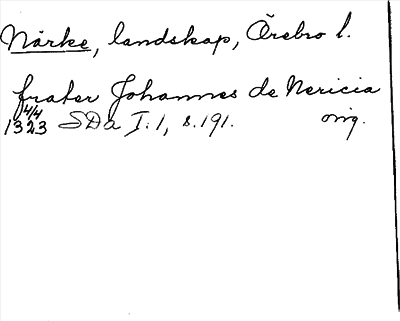 Närke, landskap, Örebro l.
frater Johannes de Nericia
4/4
1323 SDa I:1, s.191. orig.